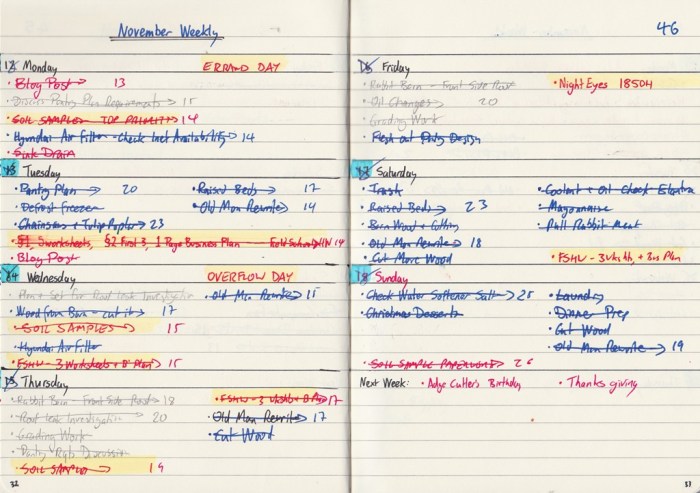 November Weekly
12 Monday
ERRAND DAY
· Blog Post → 13
· Discuss Pantry Plan Requirements → 15
· SOIL SAMPLES TOP PRIORITY → 14
· Hyundai Air Filter - Check Inet Availability → 14
· Sink Drain
13 Tuesday
· Pantry Plan → 20
· Defrost Freezer
· Chainsaw + Tulip Poplar → 23
5 worksheets, §2 First 3, 1 Page Business Plan
14
· Blog Post
· Raised Beds → 17
· Old Man Rewrite → 14
14 Wednesday
OVERFLOW DAY
· Plan + Set for Roof Leak Investigation
· Wood from Barn - cut it → 17
· SOIL SAMPLES → 15
· Hyundai Air Filter
· FSHU - 3 Worksheets + B Plan → 15
· Old Man Rewrite → 15
15 Thursday
· Rabbit Barn - Front Side Roof → 18
· Roof Leak Investigation → 20
· Grading Work
· Pantry Rqts Discussion
· SOIL SAMPLES → 19
· FSHU - 3 → 17
· Old Man Rewrite → 17
· Cut Wood
32
46
16 Friday
· Rabbit Barn - Front Side Roof
· Oil Changes → 20
· Grading Work
· Flesh out Poly Design
· Night Eyes 1850H
17 Saturday
· Trash
· Raised Beds → 23
· Burn Wood + Cutting
· Old Man Rewrite → 18
· Cut More Wood
· Coolant + Oil Check Elantra
· Mayonnaise
· Pull Rabbit Meat
· FSHU - 3 Wksth, + Bus Plan
18 Sunday
· Check Water Softener Salt → 25
· Christmas Desserts
· SOIL SAMPLE PAPERWORK → 26
· Laundry
· Dinner Prep
· Cut Wood
· Old Man Rewrite → 19
Next Week: · Adge Cutler's Birthday · Thanksgiving
33